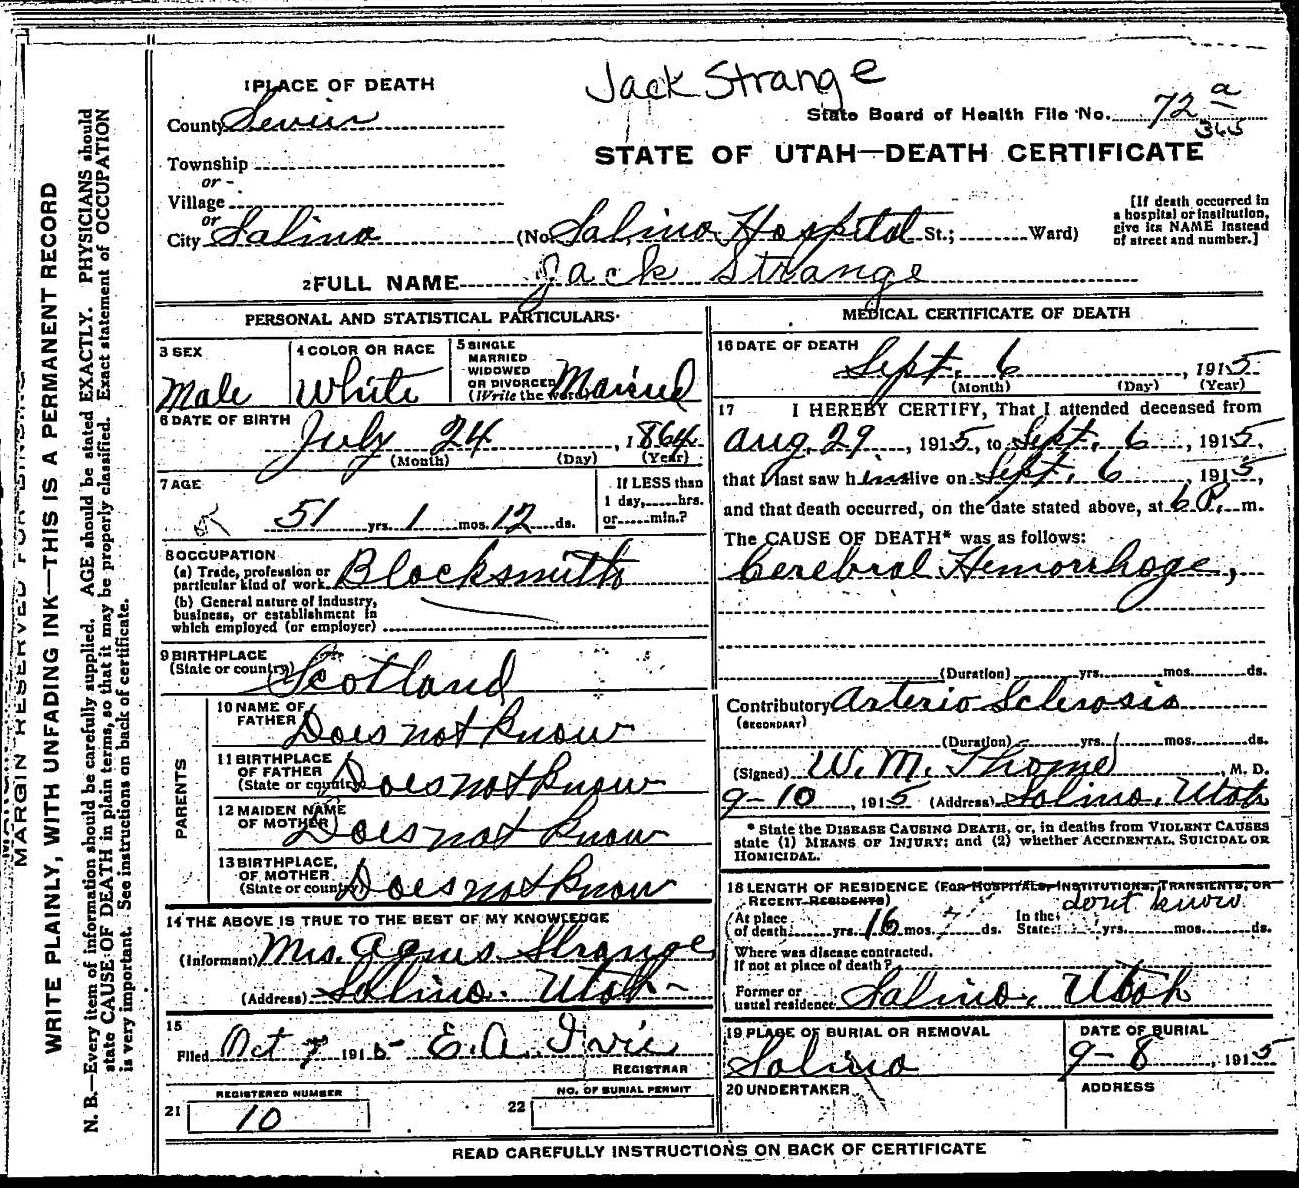 Jack Strange
1 PLACE OF DEATH
County Sevier
State Board of Health File No. 72 a
365
STATE OF UTAH—DEATH CERTIFICATE
Township
or
Village
or
City Salina (No. Salina Hospital St.; Ward)
[If death occurred in a hospital or institution, give its NAME instead of street and number.]
2 FULL NAME Jack Strange
PERSONAL AND STATISTICAL PARTICULARS
3 SEX Male
4 COLOR OR RACE White
5 SINGLE MARRIED WIDOWED OR DIVORCED (Write the word) Married
6 DATE OF BIRTH July 24, 1864
(Month) (Day) (Year)
7 AGE 51 yrs. 1 mos. 12 ds.
If LESS than 1 day, hrs. or min.?
8 OCCUPATION
(a) Trade, profession or particular kind of work Blacksmith
(b) General nature of industry, business, or establishment in which employed (or employer)
9 BIRTHPLACE (State or country) Scotland
PARENTS
10 NAME OF FATHER Does not Know
11 BIRTHPLACE OF FATHER (State or country) Does not Know
12 MAIDEN NAME OF MOTHER Does not Know
13 BIRTHPLACE OF MOTHER (State or country) Does not Know
14 THE ABOVE IS TRUE TO THE BEST OF MY KNOWLEDGE
(Informant) Mrs. Agnes Strange
(Address) Salina. Utah
15
Filed Oct 7 1915 E. A. Ivie
REGISTRAR
REGISTERED NUMBER
21 10
NO. OF BURIAL PERMIT
22
MEDICAL CERTIFICATE OF DEATH
16 DATE OF DEATH
Sept. 6, 1915
(Month) (Day) (Year)
17 I HEREBY CERTIFY, That I attended deceased from
Aug. 29, 1915, to Sept. 6, 1915,
that I last saw him alive on Sept. 6, 1915,
and that death occurred, on the date stated above, at 6 P. m.
The CAUSE OF DEATH* was as follows:
Cerebral Hemorrhage,
(Duration) yrs. mos. ds.
Contributory Arterio Sclerosis
(SECONDARY)
(Duration) yrs. mos. ds.
(Signed) W. M. Thome, M. D.
9-10, 1915 (Address) Salina, Utah
* State the DISEASE CAUSING DEATH, or, in deaths from VIOLENT CAUSES
state (1) MEANS OF INJURY; and (2) whether ACCIDENTAL, SUICIDAL OR
HOMICIDAL.
18 LENGTH OF RESIDENCE (FOR HOSPITALS, INSTITUTIONS, TRANSIENTS, OR
RECENT RESIDENTS)
At place of death yrs. 16 mos. ds. In the State yrs. mos. ds. don't know
Where was disease contracted,
If not at place of death?
Former or usual residence Salina, Utah
19 PLACE OF BURIAL OR REMOVAL
Salina
DATE OF BURIAL
9-8, 1915
20 UNDERTAKER
ADDRESS
READ CAREFULLY INSTRUCTIONS ON BACK OF CERTIFICATE
MARGIN RESERVED FOR BINDING
WRITE PLAINLY, WITH UNFADING INK—THIS IS A PERMANENT RECORD
N. B.—Every item of information should be carefully supplied. AGE should be stated EXACTLY. PHYSICIANS should
state CAUSE OF DEATH in plain terms, so that it may be properly classified. Exact statement of OCCUPATION
is very important. See instructions on back of certificate.